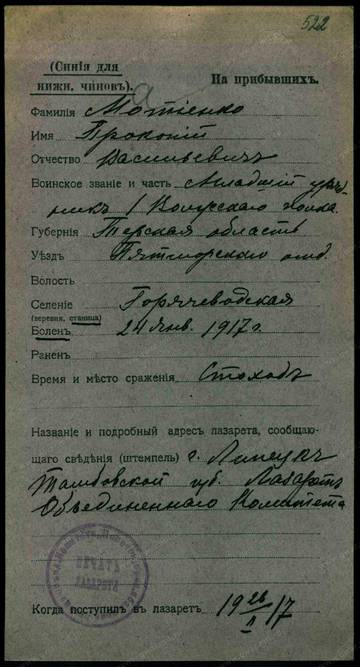 522
(Синія для
нижн. чиновъ).
На прибывшихъ.
Фамилія Мотіенко
Имя Прокопій
Отчество Васильевичъ
Воинское званіе и часть Младшій уряд-
никъ 1 Волгскаго полка.
Губернія Терская область
Уѣздъ Пятигорскаго отд.
Волость
Селеніе Горячеводская
(деревня, станица)
Боленъ 24 Янв. 1917 г.
Раненъ
Время и мѣсто сраженія Стоходъ
Названіе и подробный адресъ лазарета, сообщаю-
щаго свѣдѣнія (штемпель) г. Липецкъ
Тамбовской губ. Лазаретъ
Объединеннаго Комитета
ПЕЧАТЬ
ЛАЗАРЕТА
Когда поступилъ въ лазаретъ 19 26/II 17